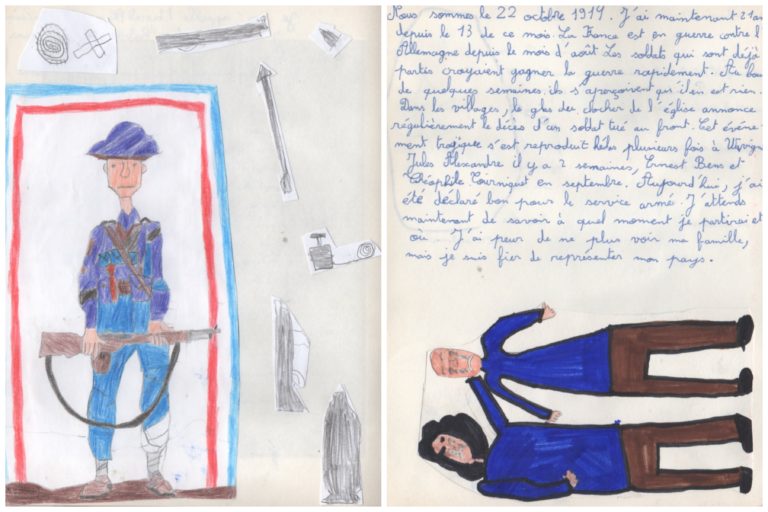 Nous sommes le 22 octobre 1914. J'ai maintenant 21 ans
depuis le 13 de ce mois. La France est en guerre contre l'
Allemagne depuis le mois d'août. Les soldats qui sont déjà
partis croyaient gagner la guerre rapidement. Au bou
de quelques semaines ils s'aperçoivent qu'il n'en est rien.
Dans les villages, le glas du clocher de l'église annonce
régulièrement le décès d'un soldat tué au front. Cet événe-
ment tragique s'est reproduit hélas plusieurs fois à
Jules Alexandre il y a 2 semaines, Ernest Bens et
Théophile Tourniquet en septembre. Aujourd'hui, j'ai
été déclaré bon pour le service armé. J'attends
maintenant de savoir à quel moment je partirai et
où. J'ai peur de ne plus voir ma famille,
mais je suis fier de représenter mon pays.